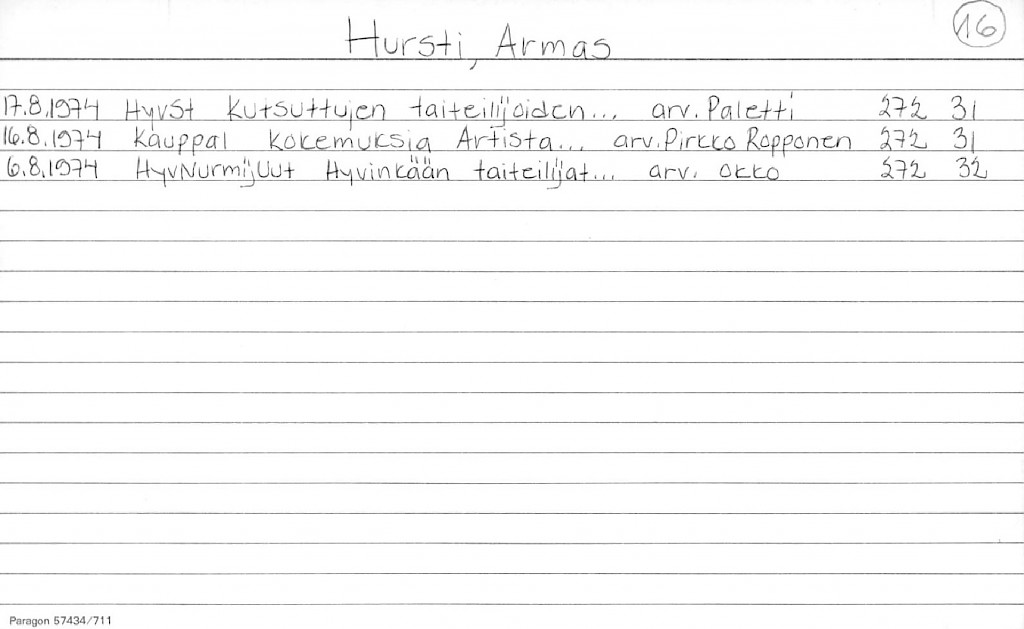 16
Hursti, Armas
17.8.1974 HyvSt Kutsuttujen taiteilijoiden... arv. Paletti 272 31
16.8.1974 Kauppal Kokemuksia Artista... arv. Pirkko Ropponen 272 31
6.8.1974 HyvNurmijUut Hyvinkään taiteilijat... arv. Okko 272 32
Paragon 57434/711